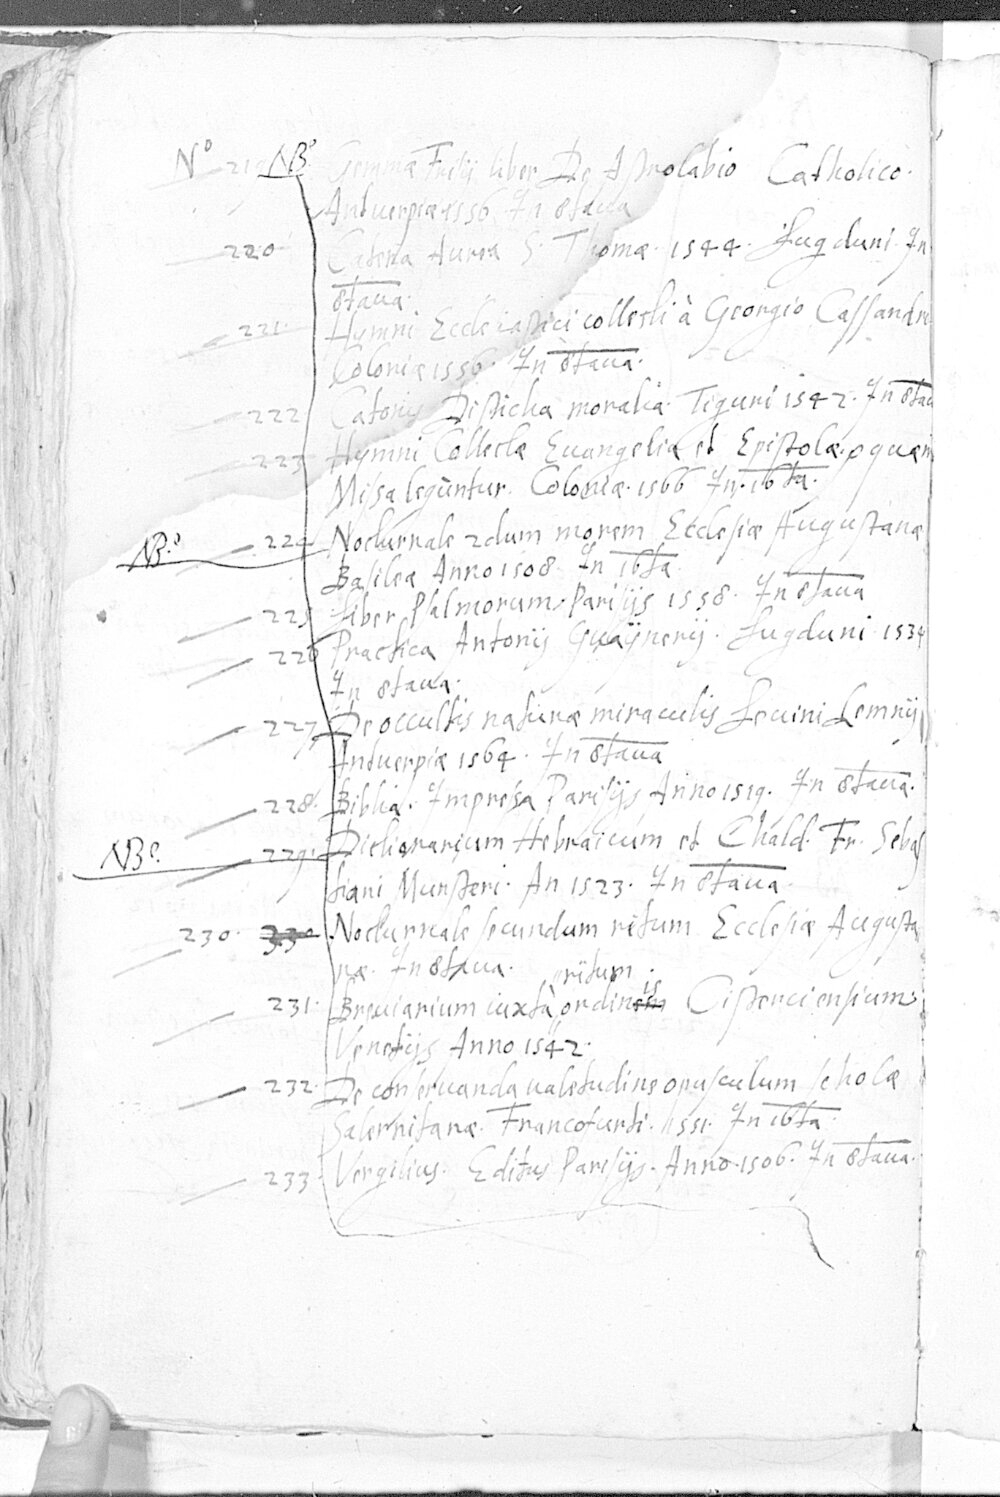 Nº 219 NB.º Gemmæ Frisij liber De Astrolabio Catholico.
Antuerpiæ 1556 In 8taua
220 Catena Aurea S. Thomæ. 1544. Lugduni. In
8taua.
221. Hymni Ecclesiastici collecti à Georgio Cassandro
Coloniæ 1556. In 8taua.
222 Catonis Disticha moralia Tiguri 1542. In 8taua
223 Hymni Collectæ Euangelia et Epistolæ. p quæ in
Missa legüntur. Coloniæ. 1566 In. 16ta.
NB.e 224 Nocturnale 2dum morem Ecclesiæ Augustanæ
Basileæ Anno 1508. In 16ta.
225 Liber Psalmorum. Parisijs 1558. In 8taua
226 Practica Antonij Guaÿnerij. Lugduni. 1534
In 8taua.
227 De occultis naturæ miraculis Leuini Lemnij
Antuerpiæ 1564. In 8taua
228. Biblia. Impressa Parisijs Anno 1519. In 8taua.
NBe. 229. Dictionarium Hebraicum et Chald. Fr. Sebas
tiani Munsteri. An 1523. In 8taua.
230. 330 Nocturnale secundum ritum Ecclesiæ Augusta
næ. In 8taua.
ritum
231. Breuiarium iuxtà ordinis Cisterciensium
Venetijs Anno 1542.
232. De conseruanda ualetudine opusculum scholæ
Salernitanæ. Francofurti. 1551. In 16ta
233. Vergilius. Editus Parisijs. Anno. 1506. In 8taua.